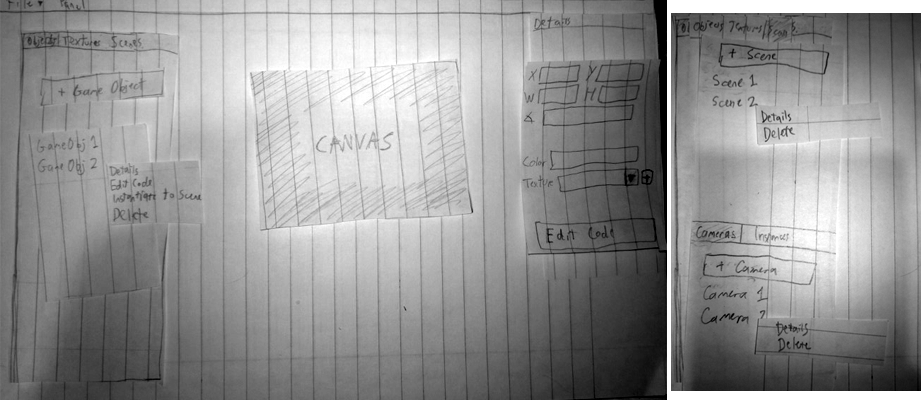 File Panel
Objects Textures Scenes
+ Game Object
GameObj 1
GameObj 2
Details
Edit Code
Instantiate to Scene
Delete
CANVAS
Details
X Y
W H
∡
Color
Texture
+
Edit Code
Objects Textures Scenes
+ Scene
Scene 1
Scene 2
Details
Delete
Cameras Instances
+ Camera
Camera 1
Camera 2
Details
Delete